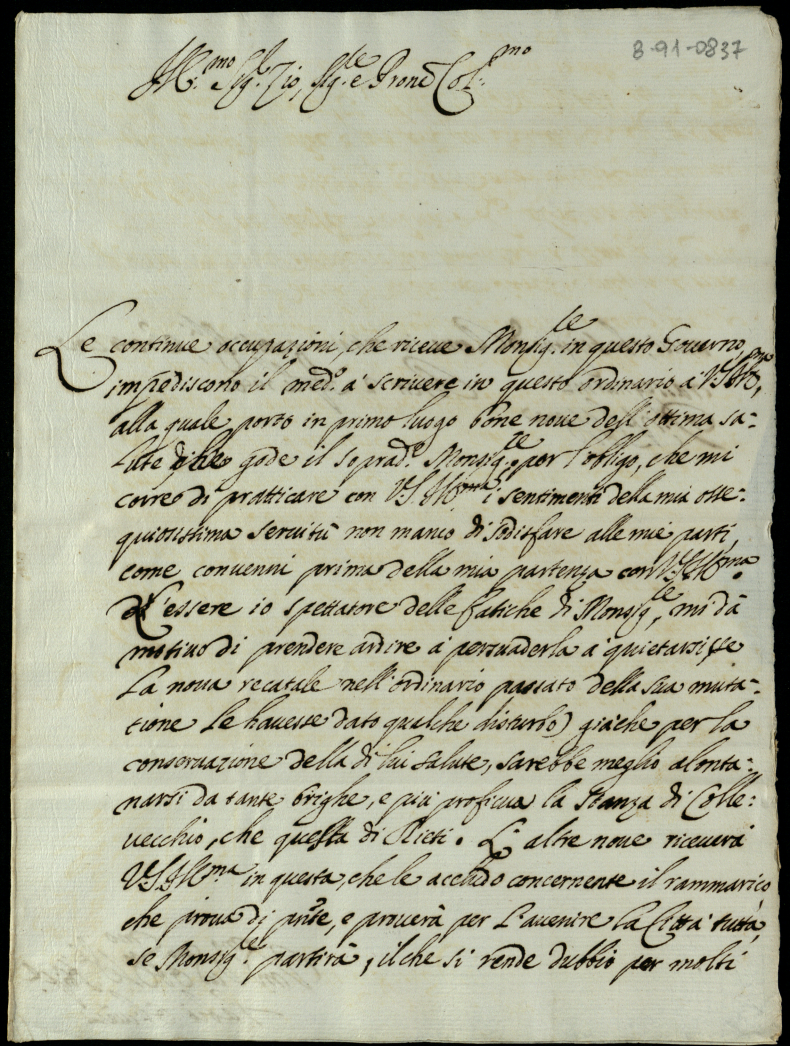 8-91-0837
Ill.mo Sig.r Zio, Sig.re e Prone Col.mo
Le continue occupazioni, che riceue Monsig.re in questo Gouerno,
impediscono il med.o à scriuere in questo ordinario à V.S.Ill.ma,
alla quale porto in primo luogo bone noue dell'ottima sa-
lute che gode il soprad.o Monsig.re, e per l'obligo, che mi
corre di pratticare con V.S.Ill.ma i sentimenti della mia osse-
quiosissima seruitù non manco di sodisfare alle mie parti,
come conuenni prima della mia partenza con V.S.Ill.ma.
L'essere io spettatore delle fatiche di Monsig.re, mi dà
motiuo di prendere ardire à persuaderla à quietarsi, se
la noua recatale nell'ordinario passato della sua muta-
tione le hauesse dato qualche disturbo, giache per la
conseruazione della di lui salute, sarebbe meglio alonta-
narsi da tante brighe, e più proficua la stanza di Colle-
uecchio, che questa di Rieti. L'altre noue riceuerà
V.S.Ill.ma in questa, che le acchiudo concernente il rammarico
che proua di pnte, e prouerà per l'auenire la Città tutta,
se Monsig.re partirà, il che si rende dubbio per molti